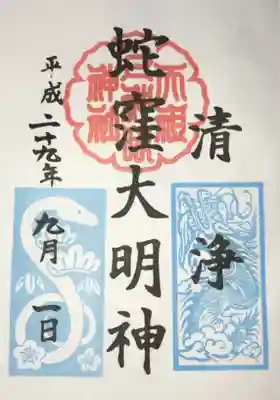 清浄
蛇窪大明神
平成二十九年
九月一日